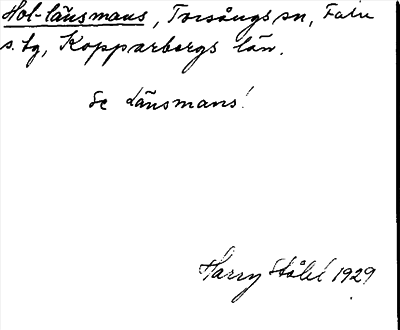 Hol-länsmans, Torsångs sn, Falu
s. tg, Kopparbergs län.
Se Länsmans!
Harry Ståhl 1929